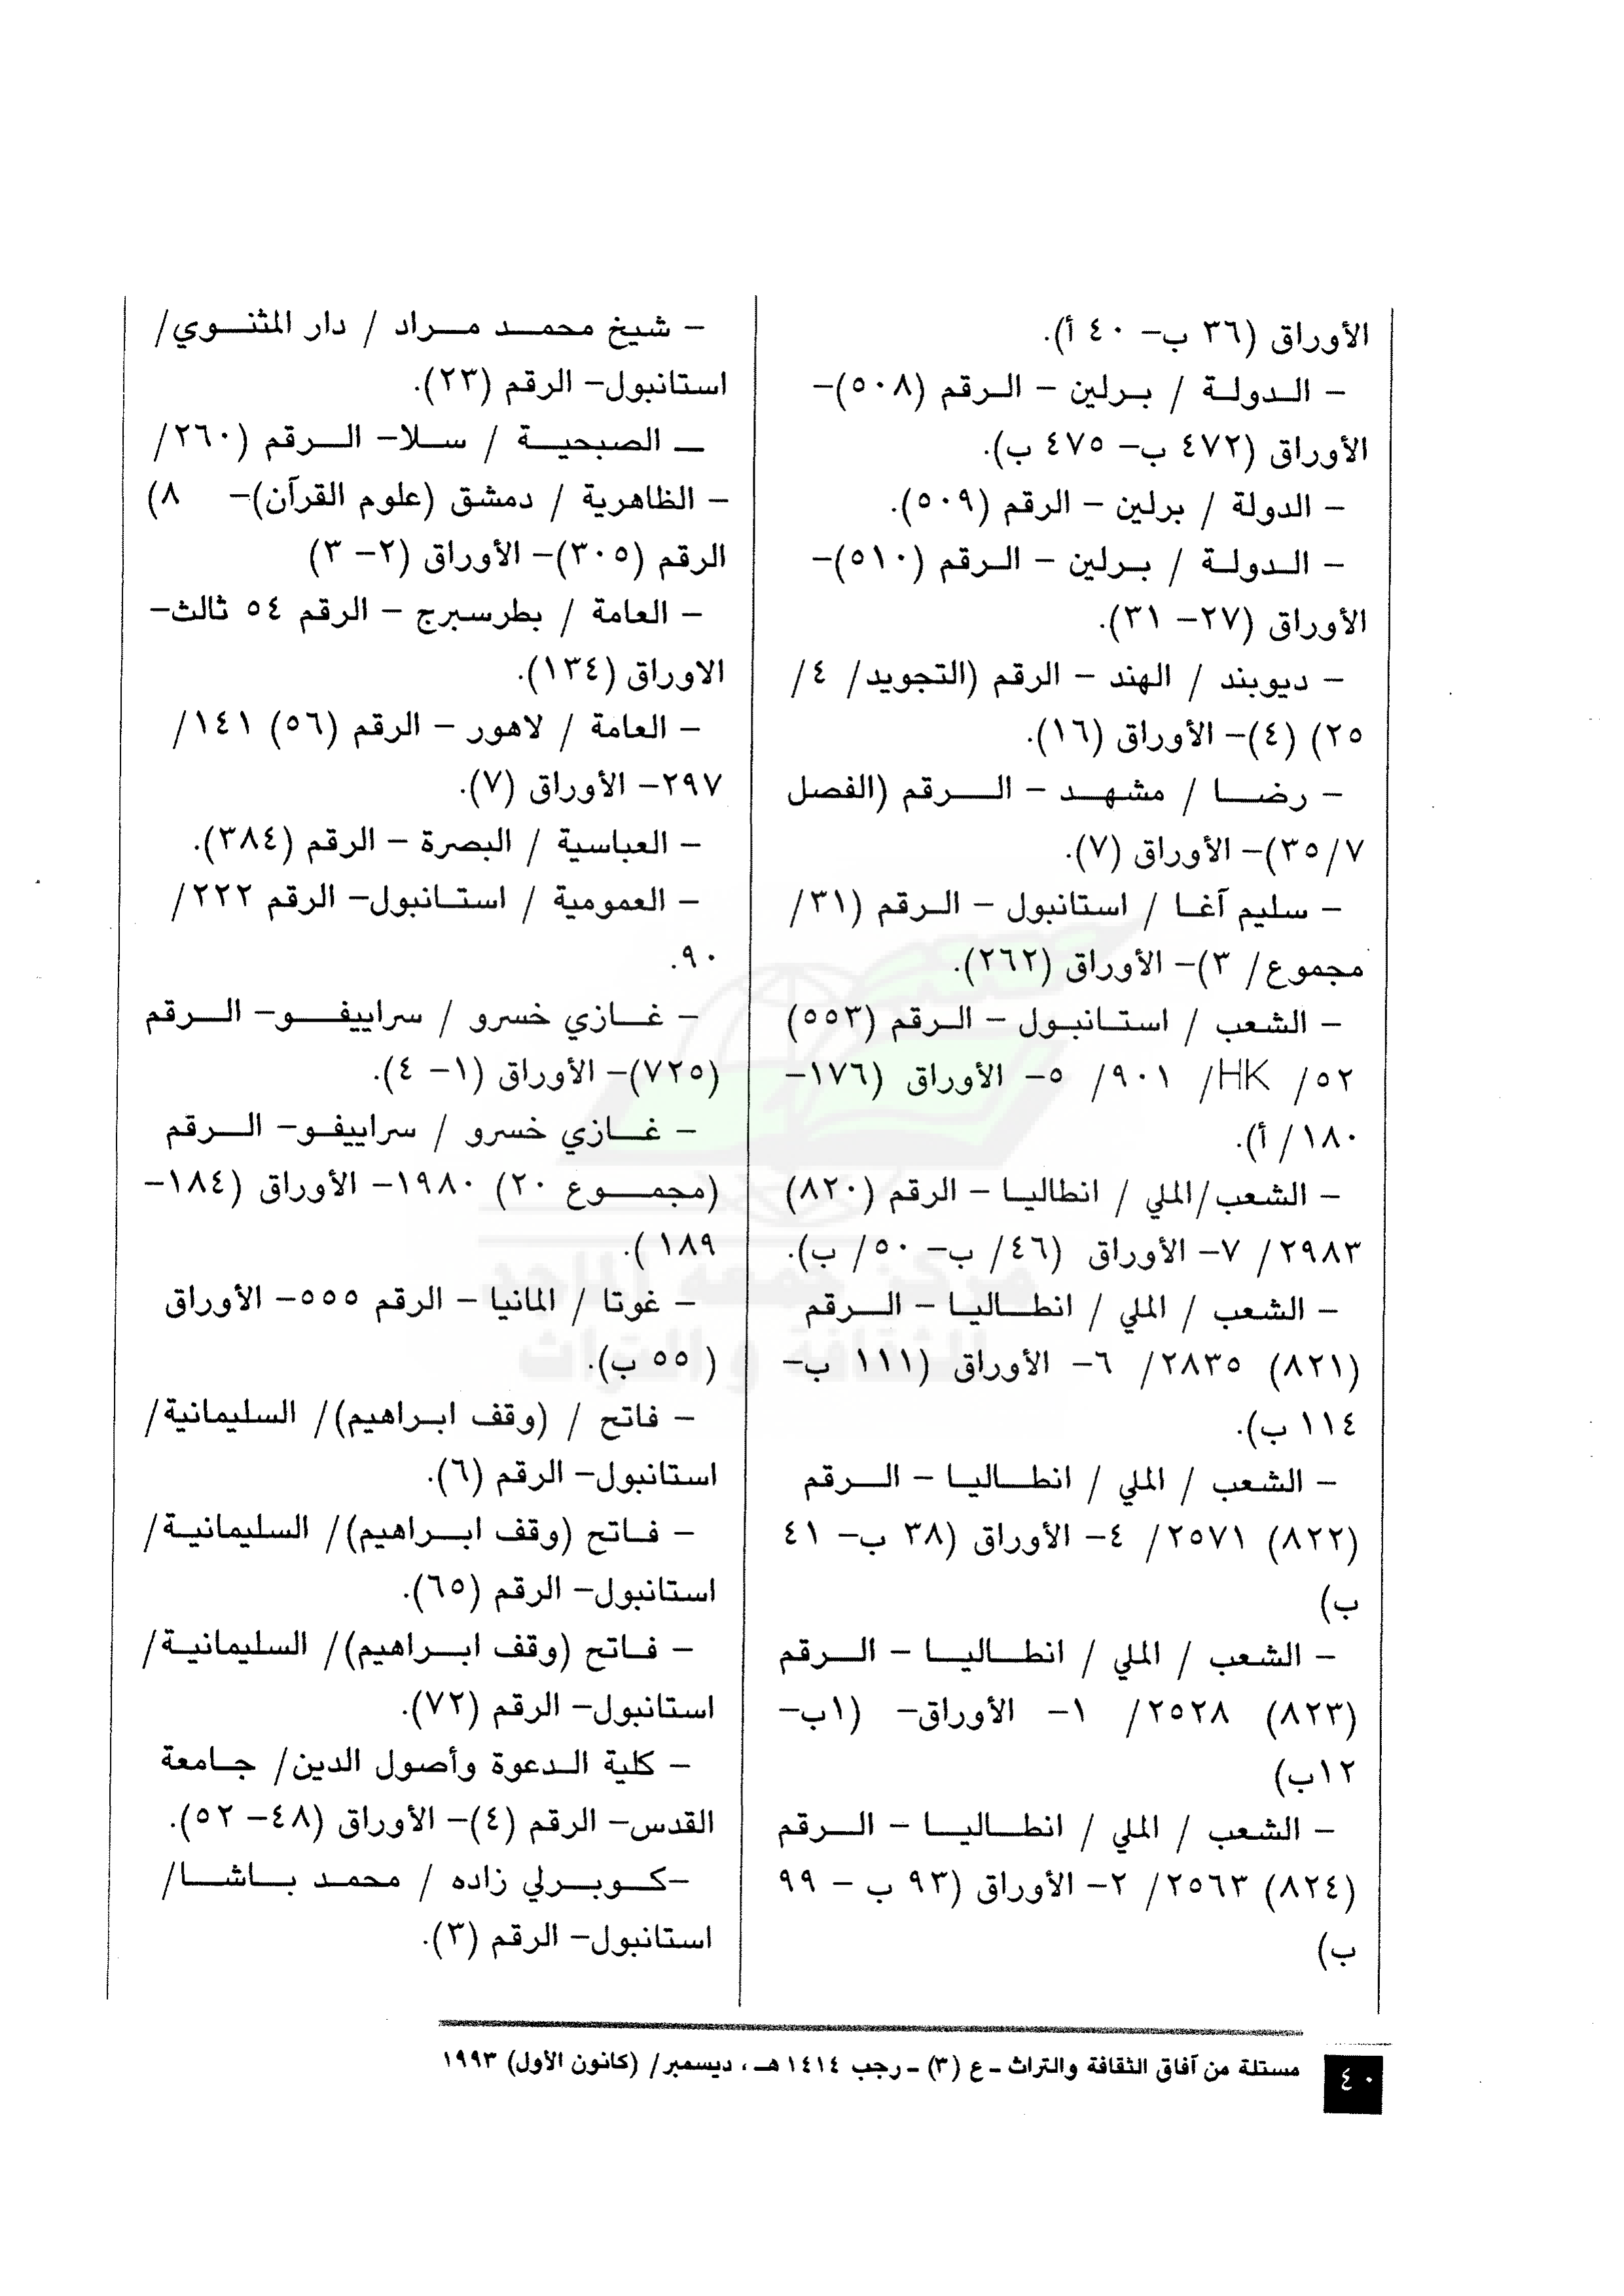 الأوراق (٣٦ ب- ٤٠ أ).
- الدولة / برلين - الرقم (٥٠٨)-
الأوراق (٤٧٢ ب- ٤٧٥ ب).
- الدولة / برلين - الرقم (٥٠٩).
- الدولة / برلين - الرقم (٥١٠)-
الأوراق (٢٧- ٣١).
- ديوبند / الهند - الرقم (التجويد/ ٤/
٢٥) (٤)- الأوراق (١٦).
- رضا / مشهد - الرقم (الفصل
٣٥/٧)- الأوراق (٧).
- سليم آغا / استانبول - الرقم (٣١/
مجموع/ ٣)- الأوراق (٢٦٢).
- الشعب / استانبول - الرقم (٥٥٣)
٥٢/ HK/ ٩٠١/ ٥- الأوراق (١٧٦-
١٨٠/ أ).
- الشعب/الملي / انطاليا - الرقم (٨٢٠)
٢٩٨٣/ ٧- الأوراق (٤٦/ ب- ٥٠/ ب).
- الشعب / الملي / انطاليا - الرقم
(٨٢١) ٢٨٣٥/ ٦- الأوراق (١١١ ب-
١١٤ ب).
- الشعب / الملي / انطاليا - الرقم
(٨٢٢) ٢٥٧١/ ٤- الأوراق (٣٨ ب- ٤١
ب)
- الشعب / الملي / انطاليا - الرقم
(٨٢٣) ٢٥٢٨/ ١- الأوراق- (١ب-
١٢ب)
- الشعب / الملي / انطاليا - الرقم
(٨٢٤) ٢٥٦٣/ ٢- الأوراق (٩٣ ب - ٩٩
ب)
- شيخ محمد مراد / دار المثنوي/
استانبول- الرقم (٢٣).
ـ الصبحية / سلا- الرقم (٢٦٠/
- الظاهرية / دمشق (علوم القرآن)- ٨)
الرقم (٣٠٥)- الأوراق (٢- ٣)
- العامة / بطرسبرج - الرقم ٥٤ ثالث-
الاوراق (١٣٤).
- العامة / لاهور - الرقم (٥٦) ١٤١/
٢٩٧- الأوراق (٧).
- العباسية / البصرة - الرقم (٣٨٤).
- العمومية / استانبول- الرقم ٢٢٢/
٩٠.
- غازي خسرو / سراييفو- الرقم
(٧٢٥)- الأوراق (١- ٤).
- غازي خسرو / سراييفو- الرقم
(مجموع ٢٠) ١٩٨٠- الأوراق (١٨٤-
١٨٩ ).
- غوتا / المانيا - الرقم ٥٥٥- الأوراق
(٥٥ ب).
- فاتح / (وقف ابراهيم)/ السليمانية/
استانبول- الرقم (٦).
- فاتح (وقف ابراهيم)/ السليمانية/
استانبول- الرقم (٦٥).
- فاتح (وقف ابراهيم)/ السليمانية/
استانبول- الرقم (٧٢).
- كلية الدعوة وأصول الدين/ جامعة
القدس- الرقم (٤)- الأوراق (٤٨- ٥٢).
-كوبرلي زاده / محمد باشا/
استانبول- الرقم (٣).
مركز جمعة الماجد
للثقافة والتراث
مستلة من آفاق الثقافة والتراث ـ ع (٣) ـ رجب ١٤١٤ هـ ، ديسمبر/ (كانون الأول) ١٩٩٣
٤٠